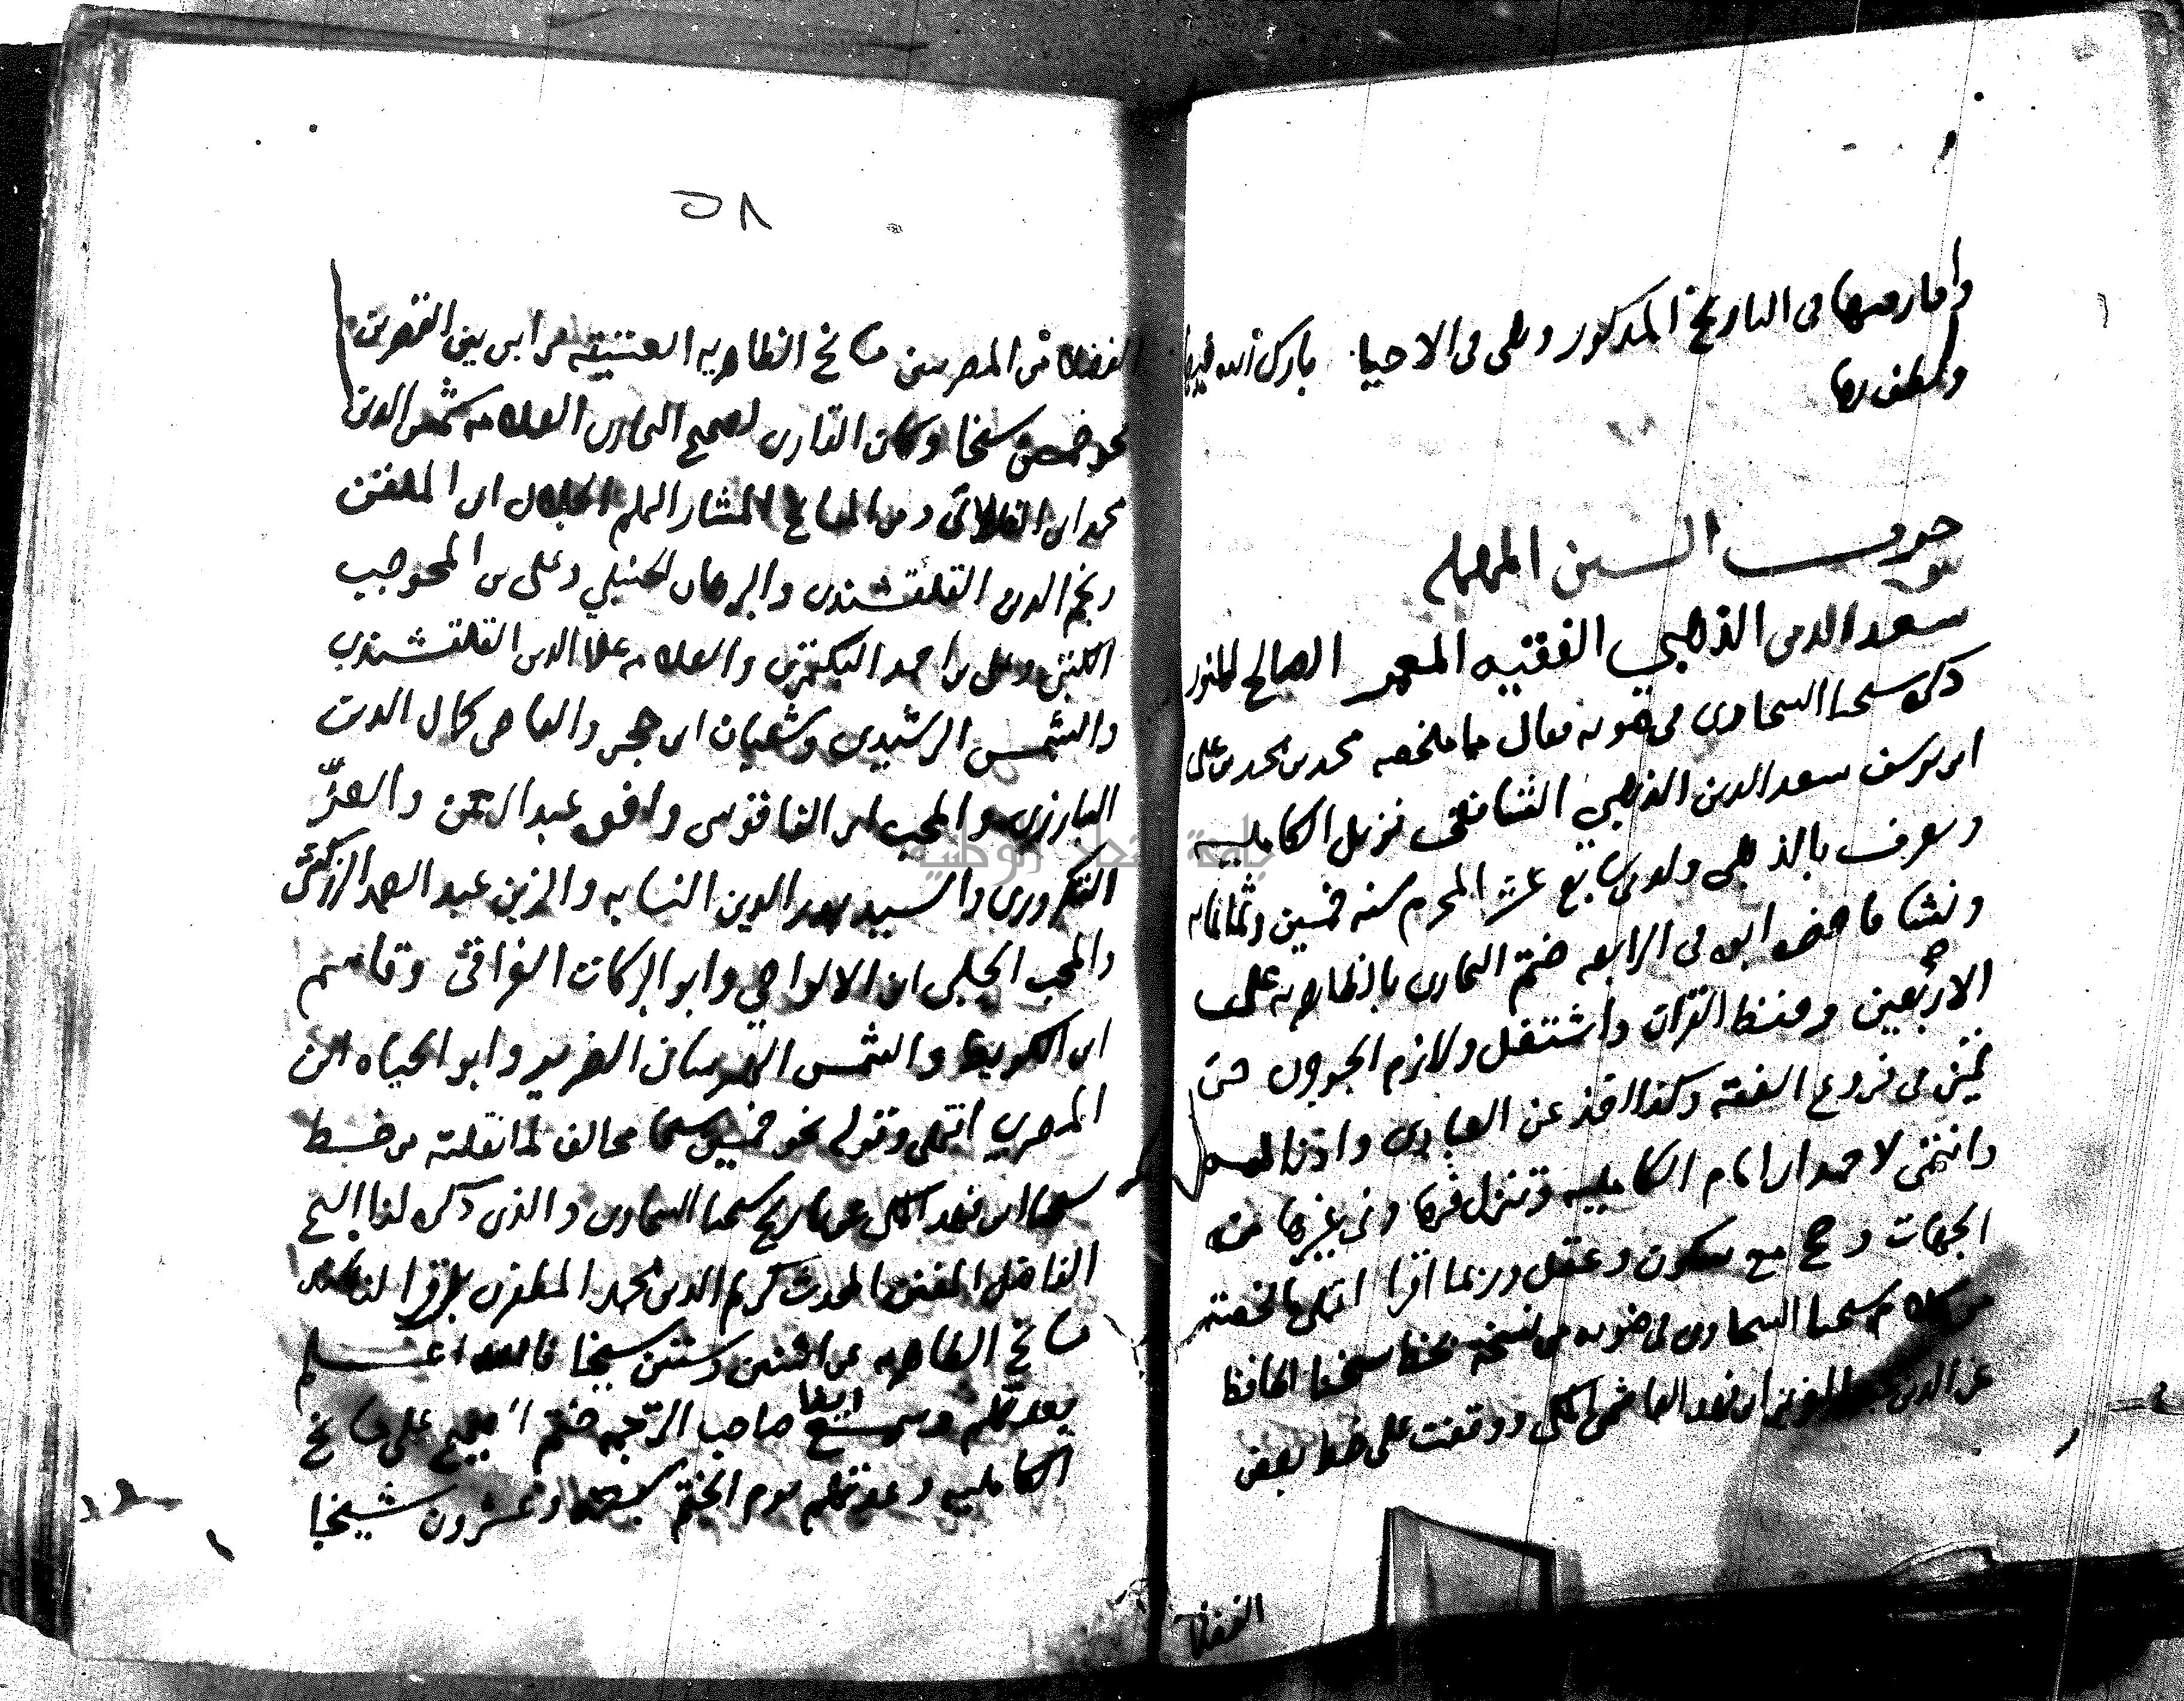 واقا ربها في التاريخ المذكور وهي في الاحيا بارك الله فيها
ولطف بها
حرف السين المهمله
سعد الدين الذهبي الفقيه المعمر الصالح المنور
ذكره شيخنا السخاوي في ضوئه فقال ما ملخصه محمد بن محمد بن علي
ابن يوسف سعد الدين الذهبي الشافعي نزيل الكامليه
ويعرف بالذهبي ولد في سابع عشر المحرم سنه خمسين وثمانمايه
ونشا فاحضره ابوه في الرابعه ختم البخاري بالظاهريه على
الاربعين وحفظ القران واشتغل ولازم الجوجري حتى
تميز في فروع الفقه وكذا اخذ عن العبادي واذنا له
وانتمى لاحمد ابن امام الكامليه وتنزل فيها وفي غيرها من
الجهات وحج مع سكون وعقل وربما اقرا انتهى ما لخصته
من كلام شيخنا السخاوي في ضوئه من نسخه بخط شيخنا الحافظ
عز الدين عبد العزيز ابن فهد الهاشمي المكي ووقفت على خط بعض
الفضلا
٥٨
الفضلا من المصريين مشايخ الظاهريه العتيقه من ابن بين القصرين
نحو خمسين شيخا وكان القاري لصحيح البخاري العلامه شمس الدين
محمد ابن الفالاتي ومن المشايخ المشار اليهم الجلال ابن الملقن
ونجم الدين القلقشندي والبرهان الحنبلي وعلي بن المحوجب
الكتبي وعلي بن احمد البكتمري والعلامه علا الدين القلقشندي
والشمس الرشيدي وشعبان ابن حجر والقاضي كمال الدين
البارزي والمحب ابن الفاقوسي وافق عبد الرحمن والعز
التكروري والسيد بدر الدين النسابه والزين عبد الصمد الزركشي
والمحب الحلبي ابن الالواحي وابو البركات الغراقي وقاسم
ابن الكويك والشمس الضرير وابو الحياه ابن
المصري انتهى وقوله نحو خمسين شيخا مخالف لما نقلته من خط
شيخنا ابن فهد المكي عن تاريخ شيخنا السخاوي والذي ذكره لنا الشيخ
الفاضل المفنن المحدث كريم الدين محمد
مشايخ الظاهريه عن اثنين وستين شيخا فالله اعلم
بعدتهم وسمع ايضا صاحب الترجمه ختم الصحيح على مشايخ
الكامليه وعدتهم يوم الختم سبعه وعشرون شيخا